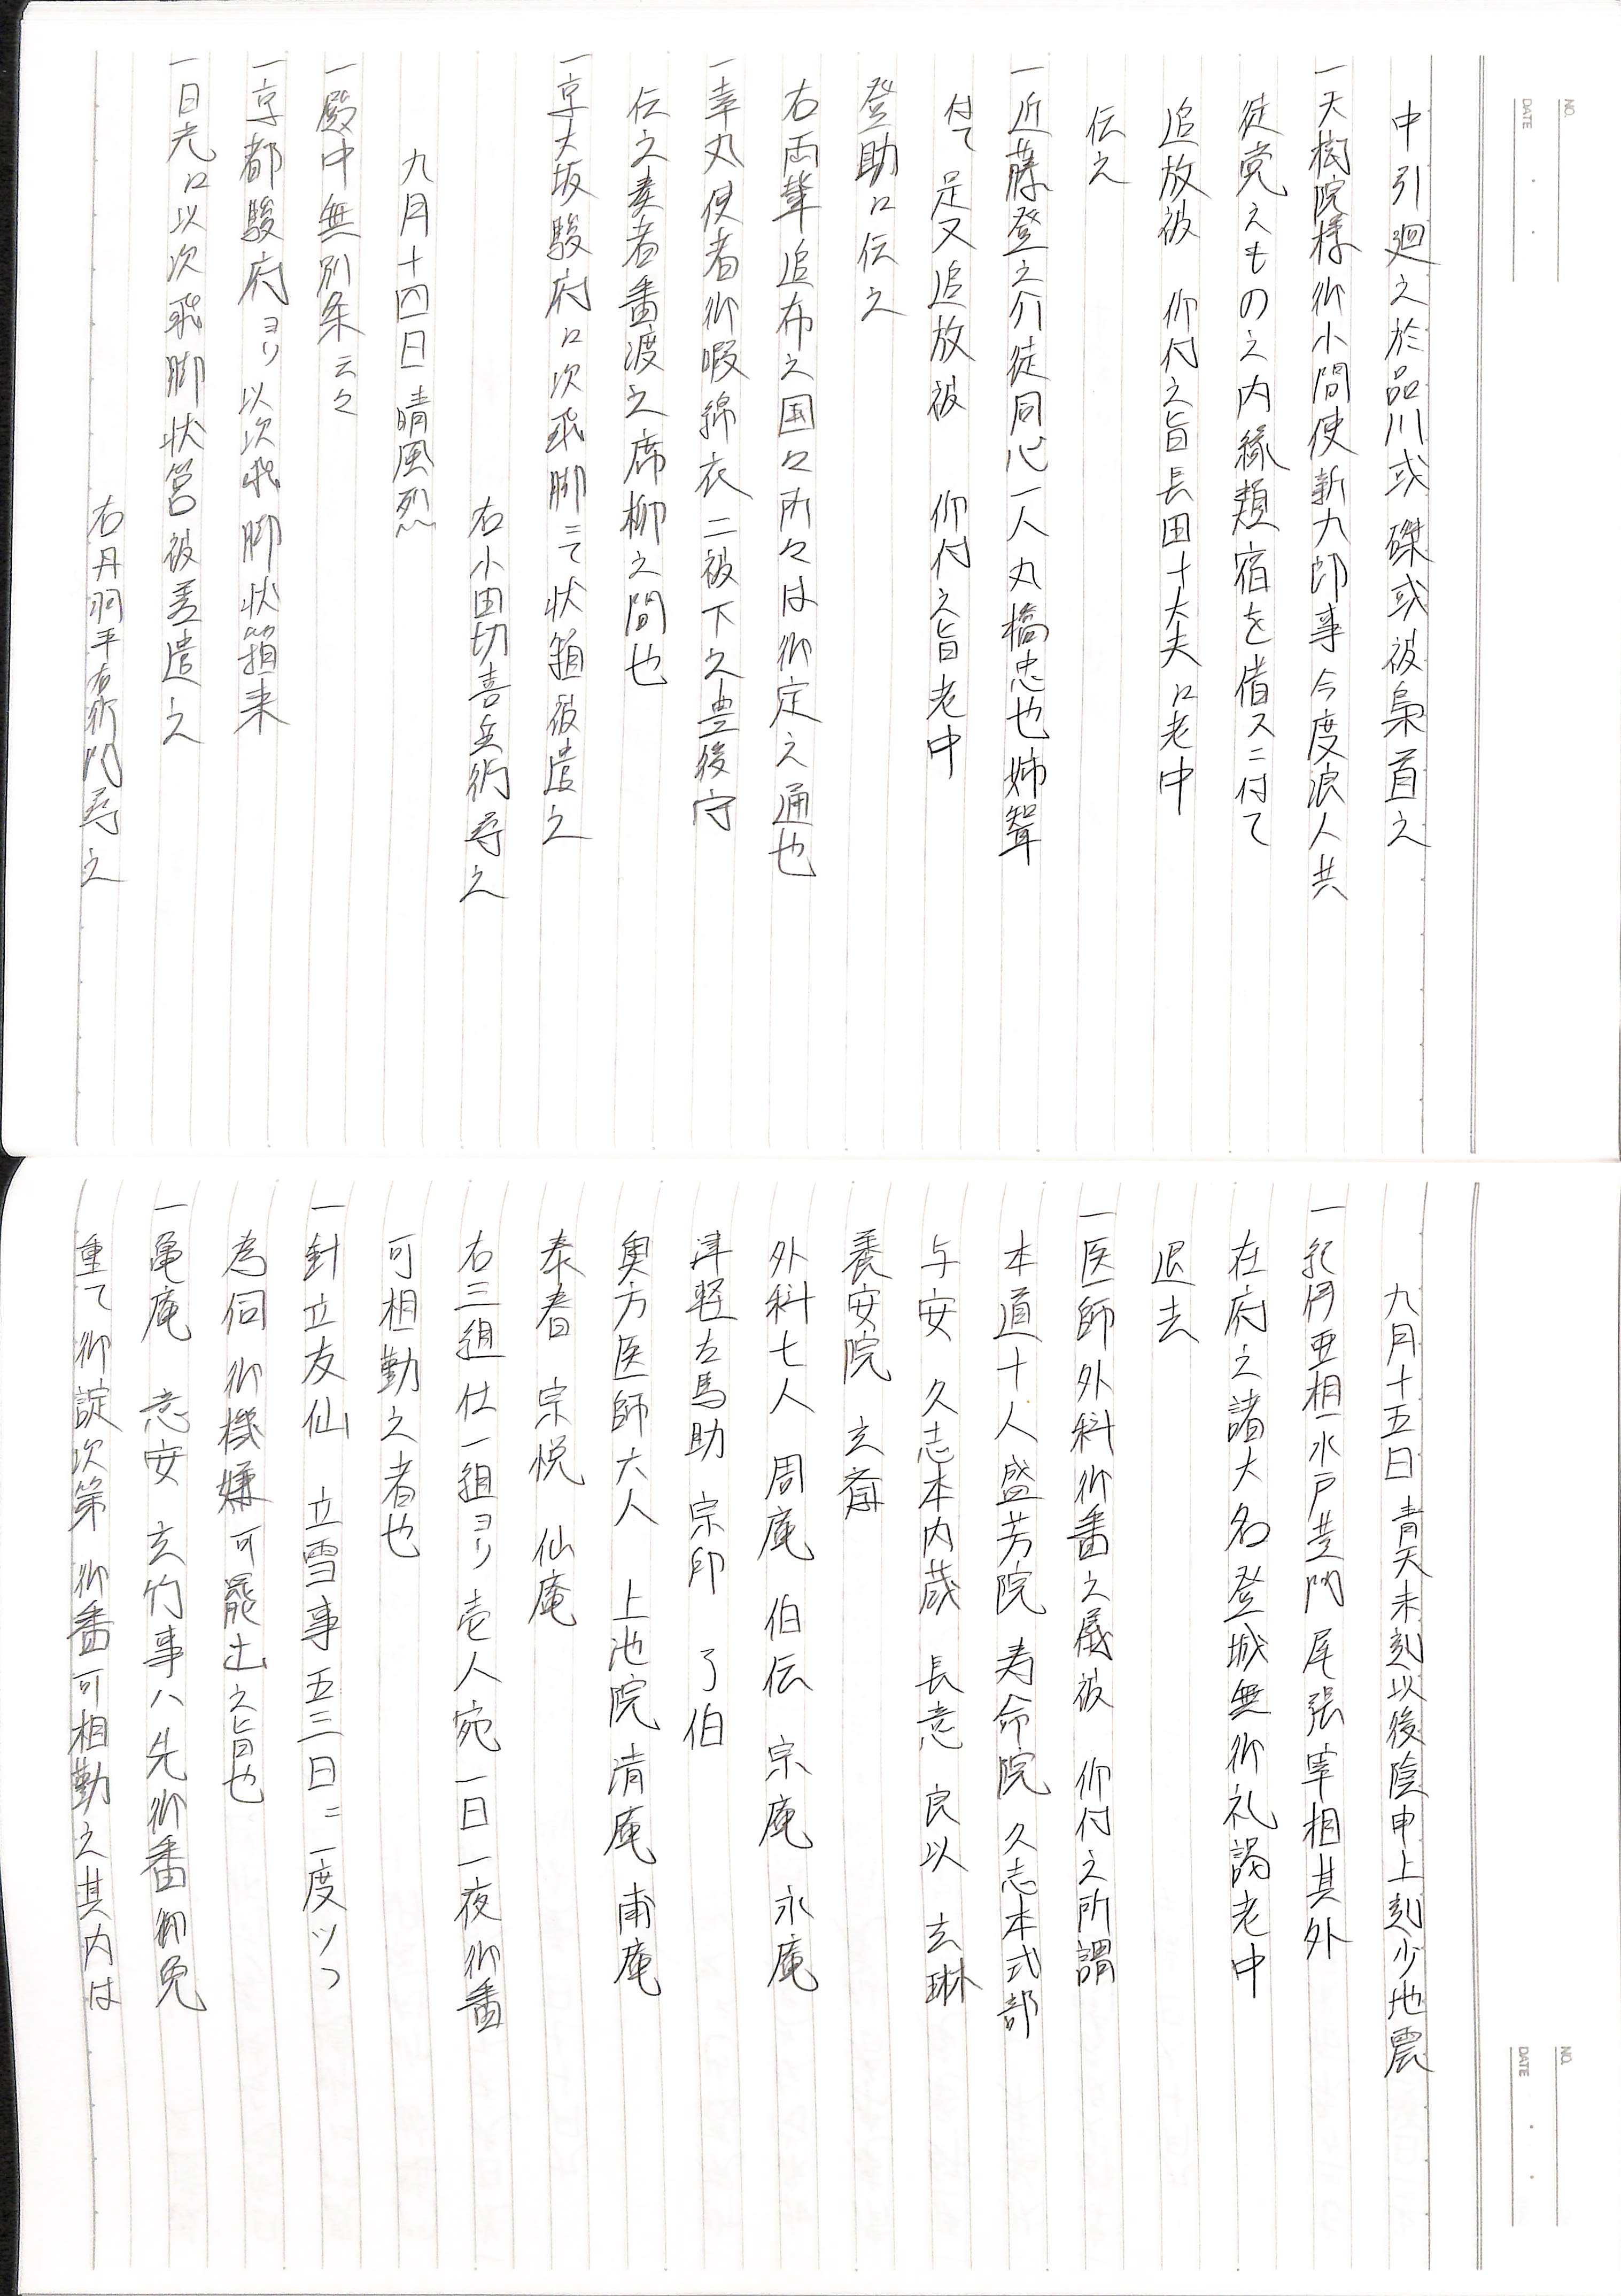 NO.
DATE
中引廻之於品川或磔或被梟首之
一天樹院様御小間使新九郎事今度浪人共
徒党之もの之内縁類宿を借スニ付て
追放被 仰付之旨長田十大夫江老中
伝之
一近藤登之介徒同心一人丸橋忠也姉聟
付て 是又追放被 仰付之旨老中
登助江伝之
右両輩追布之国々所々は御定之通也
一幸丸使者御暇綿衣二被下之豊後守
伝之奏者番渡之席柳之間也
一京大坂駿府江次飛脚ニて状箱被遣之
右小田切喜兵衛尋之
九月十四日 晴風烈
一殿中無別条云々
一京都駿府ヨリ以次飛脚状箱来
一日光江以次飛脚状筥被差遣之
右丹羽平右衛門尋之
NO.
DATE
九月十五日 青天未刻以後陰申上刻少地震
一紀伊亜相水戸黄門尾張宰相其外
在府之諸大名登城無御礼謁老中
退去
一医師外科御番之儀被 仰付之所謂
本道十人盛芳院 寿命院 久志本式部
与安 久志本内蔵 長意 良以 玄琳
養安院 玄斎
外科七人 周庵 伯伝 宗庵 永庵
津軽左馬助 宗印 了伯
奥方医師六人 上池院 清庵 甫庵
泰春 宗悦 仙庵
右三組仕一組ヨリ壱人宛一日一夜御番
可相勤之者也
一針立友仙 立雪事五三日ニ一度ツヽ
為伺御機嫌可罷出之旨也
一亀庵 意安 玄竹事ハ先御番御免
重て御諚次第 御番可相勤之其内は